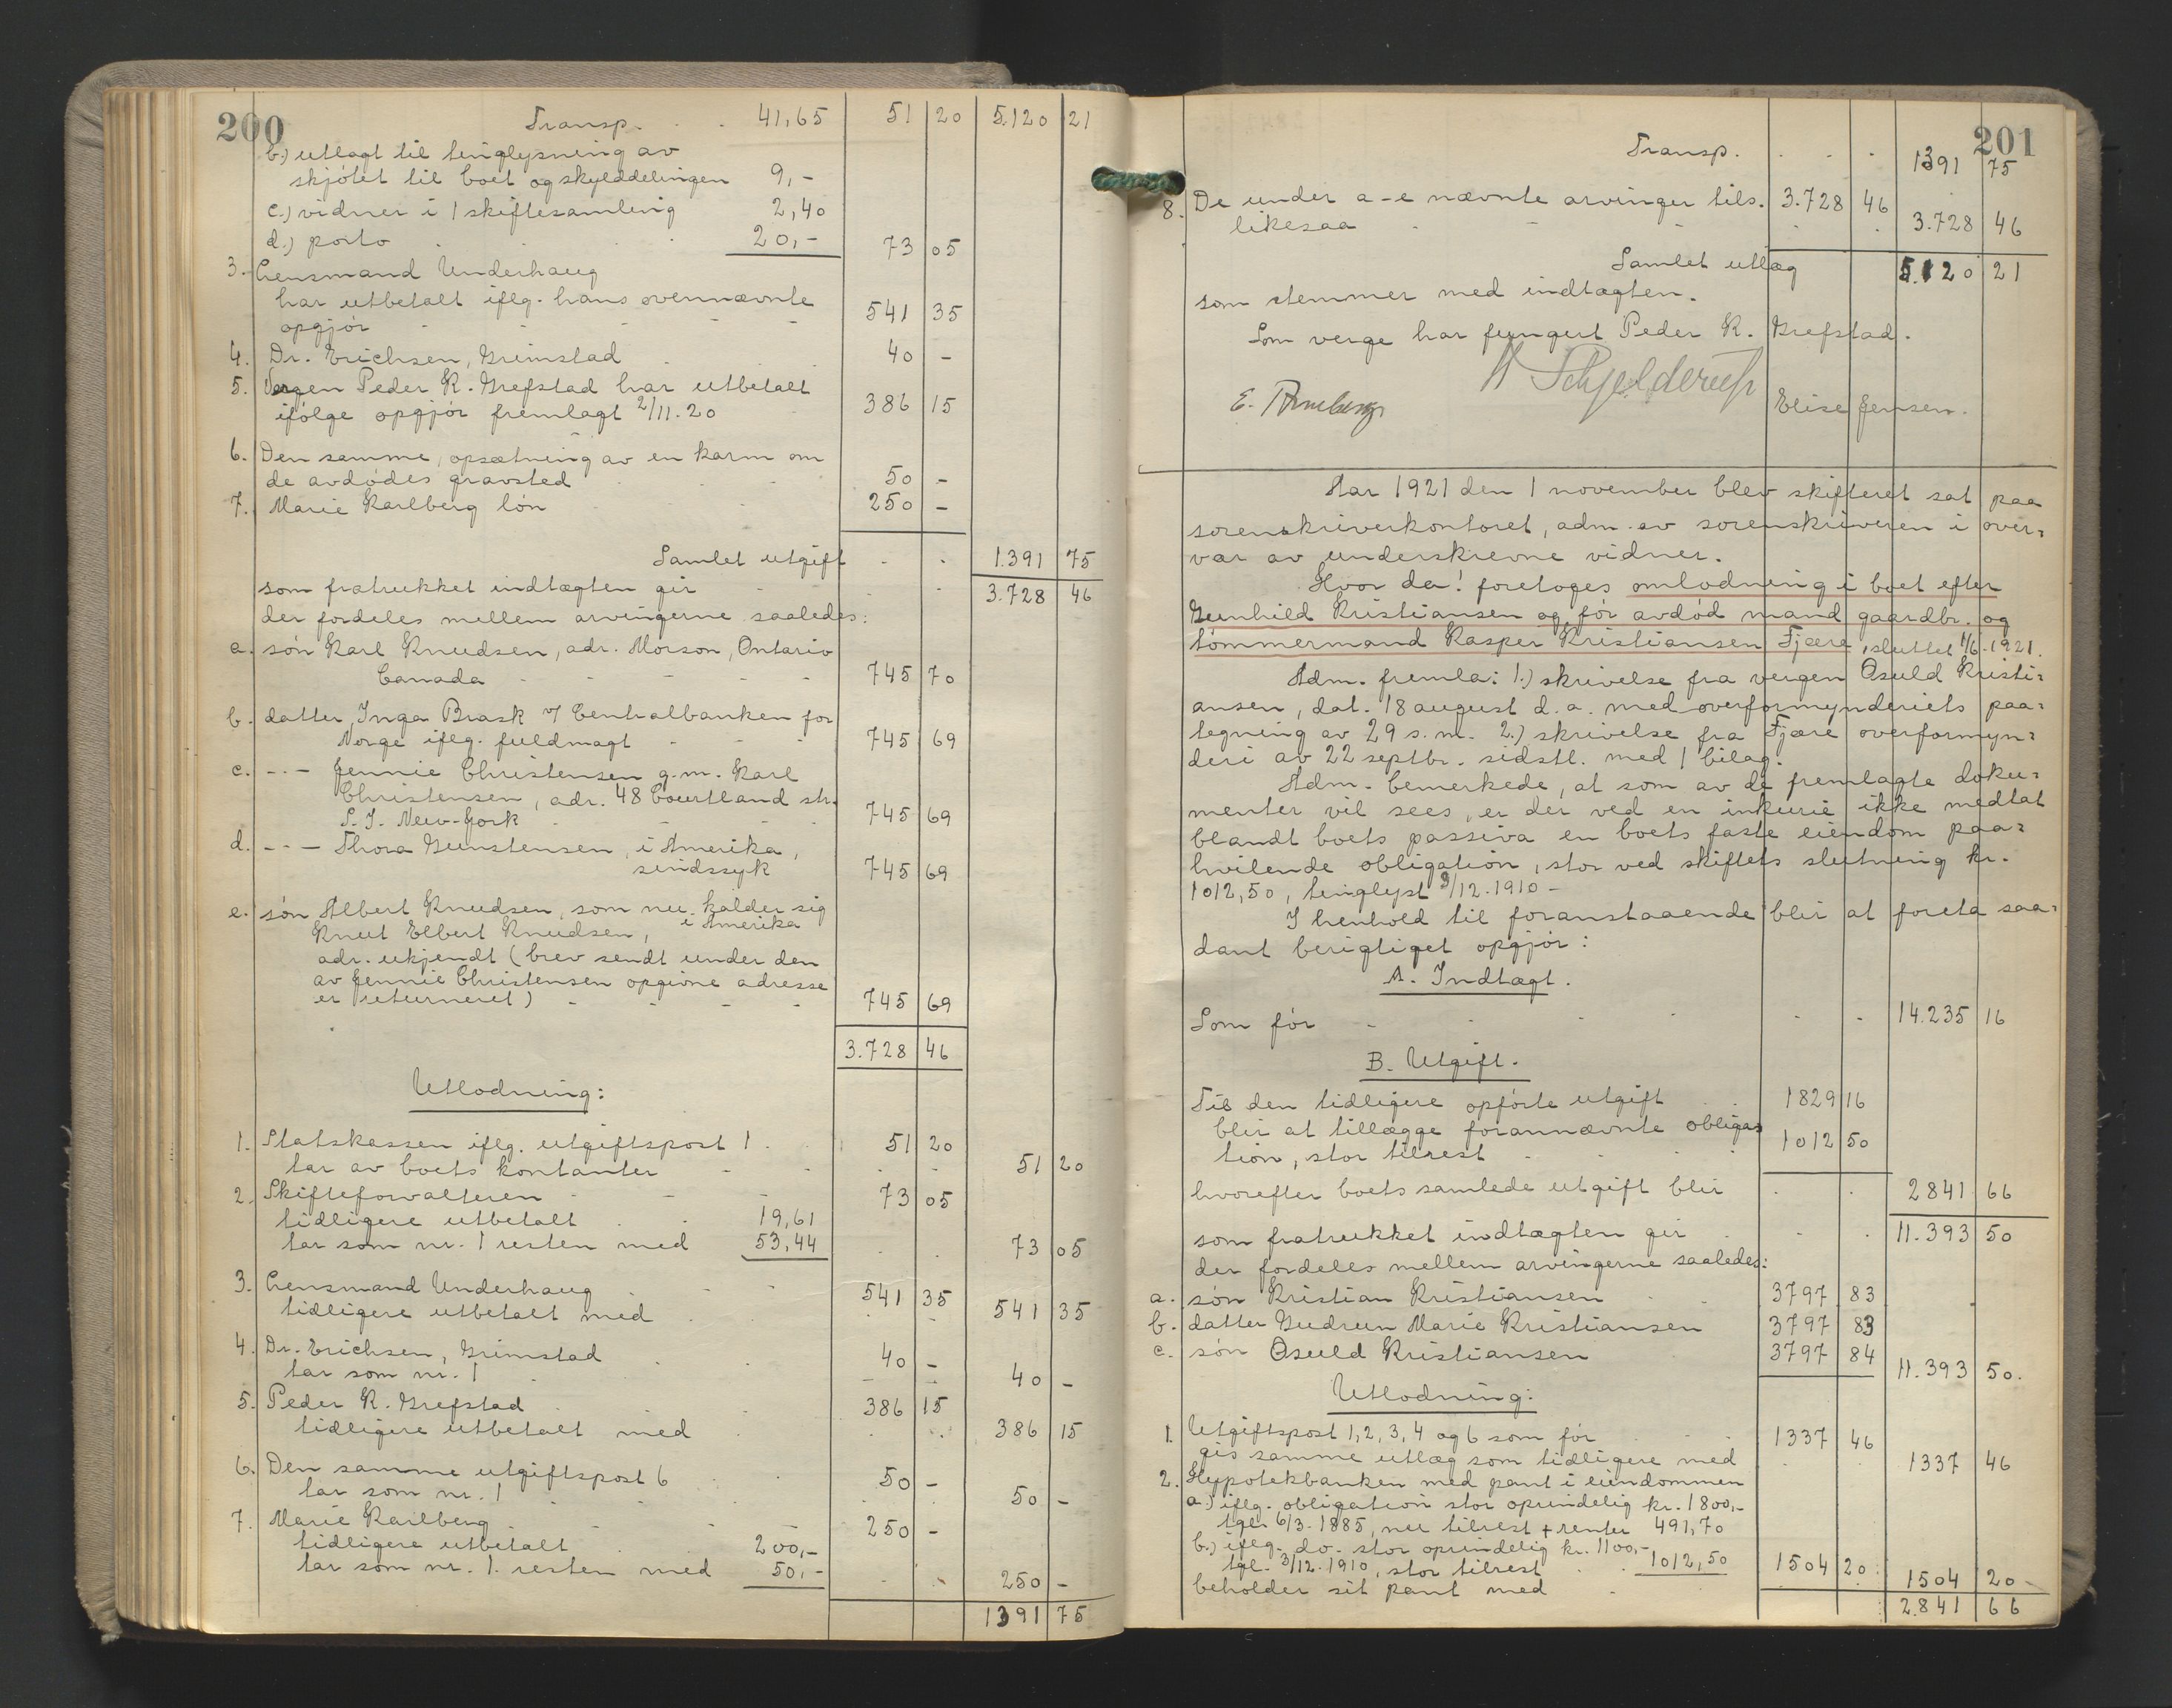 200
Transp. . . 41,65 51 20 5.120 21
b.) utlagt til tinglysning av
skjötet til boet og skylddelingen 9,-
c.) vidner i 1 skiftesamling 2,40
d.) porto . . . 20,- 73 05
3. Lensmand Underhaug
har utbetalt iflg. hans ovennævnte
opgjör - - - - - 541 35
4. Dr. Erichsen, Grimstad . 40 -
5. Vergen Peder K. Grefstad har utbetalt
ifölge opgjör fremlagt 2/11.20 386 15
6. Den samme, opsætning av en karm om
de avdödes gravsted . . 50 -
7. Marie Karlberg lön . . 250 -
Samlet utgift . . 1.391 75
som fratrukket indtægten gir - . - 3.728 46
der fordeles mellem arvingerne saaledes:
a. sön Karl Knudsen, adr. Morson, Ontario
Canada - - - - - 745 70
b. datter, Inga Brask v/ Centralbanken for
Norge iflg. fuldmagt - - - 745 69
c. -·- Jennie Christensen g.m. Karl
Christensen, adr. 48 Courtland str.
S.I. New-York . - - - . 745 69
d. -·- Thora Gunstensen, i Amerika,
sindssyk 745 69
e. sön Albert Knudsen, som nu kalder sig
Knut Elbert Knudsen, i Amerika
adr. ukjendt (brev sendt under den
av Jennie Christensen opgivne adresse
er returneret) - - - - 745 69
3.728 46
Utlodning:
1. Statskassen iflg. utgiftspost 1 . . 51 20
tar av boets kontanter - - . - 51 20
2. Skifteforvalteren - - - 73 05
tidligere utbetalt . . 19,61
tar som nr. 1 resten med 53,44 . . 73 05
3. Lensmand Underhaug . - 541 35
tidligere utbetalt med . . - 541 35
4. Dr. Erichsen, Grimstad . . 40 -
tar som nr. 1 . . - - 40 -
5. Peder K. Grefstad . . 386 15
tidligere utbetalt med . . . 386 15
6. Den samme utgiftspost 6 . . 50 -
tar som nr. 1 . . . . 50 -
7. Marie Karlberg . . . 250 -
tidligere utbetalt . . 200,-
tar som nr. 1. resten med 50,- . . 250 -
1391 75
201
Transp. . . . 1391 75
8. De under a-e nævnte arvinger tils. 3.728 46
likesaa . . . . . 3.728 46
Samlet utlæg 5.120 21
som stemmer med indtægten.
Som verge har fungert Peder K. Grefstad.
Schjelderup
E. Elise Jensen.
Aar 1921 den 1 november blev skifteret sat paa
sorenskriverkontoret, adm. av sorenskriveren i over-
vær av underskrevne vidner.
Hvor da! foretoges omlodning i boet efter
Gunhild Kristiansen og för avdöd mand gaardbr. og
tömmermand Kasper Kristiansen Fjære, sluttet 1/6-1921.
Adm. fremla: 1.) skrivelse fra vergen Osuld Kristi-
ansen, dat. 18 august d.a. med overformynderiets paa-
tegning av 29 s.m. 2.) skrivelse fra Fjære overformyn-
deri av 22 septbr. sidstl. med 1 bilag.
Adm. bemerkede, at som av de fremlagte doku-
menter vil sees, er der ved en inkurie ikke medtat
blandt boets passiva en boets faste eiendom paa-
hvilende obligation, stor ved skiftets slutning kr.
1012,50, tinglyst 3/12.1910 -
I henhold til foranstaaende blir at foreta saa-
dant berigtiget opgjör:
A. Indtægt.
Som för - - . . . - 14.235 16
B. Utgift.
Til den tidligere opförte utgift . . 1829 16
blir at tillægge forannævnte obliga-
tion, stor tilrest - . . . 1012 50
hvorefter boets samlede utgift blir . . 2841 66
som fratrukket indtægten gir . . . 11.393 50
der fordeles mellem arvingerne saaledes:
a. sön Kristian Kristiansen . 3797 83
b. datter Gudrun Marie Kristiansen 3797 83
c. sön Osuld Kristiansen 3797 84 11.393 50.
Utlodning:
1. Utgiftspost 1,2,3,4 og 6 som för . . . 1337 46
gis samme utlæg som tidligere med . . 1337 46
2. Hypotekbanken med pant i eiendommen
a.) iflg. obligation stor oprindelig kr. 1800,-
tgl. 6/3-1885, nu tilrest + renter 491,70
b.) iflg. do. stor oprindelig kr. 1100,-
tgl. 3/12.1910, stor tilrest . . 1012,50 1504 20
beholder sit pant med . . 1504 20
2.841 66